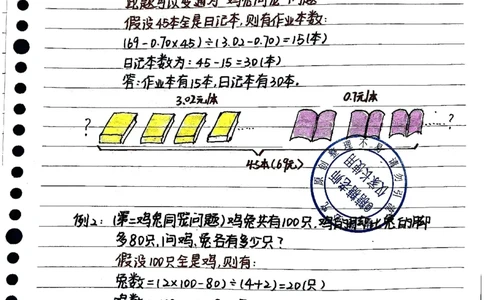 假设45本全是日记本,则有作业本数:
(69-0.70×45)÷(3.02-0.70)=15(本)
日记本数为:45-15=30(本)
答:作业本有15本,日记本有30本。
3.02元/本 0.7元/本
? ?
45本(69元)
例2:(第二鸡兔同笼问题)鸡兔共有100只,鸡的脚比兔的脚
多80只,问鸡、兔各有多少只?
假设100只全是鸡,则有:
兔数=(2×100-80)÷(4+2)=20(只)